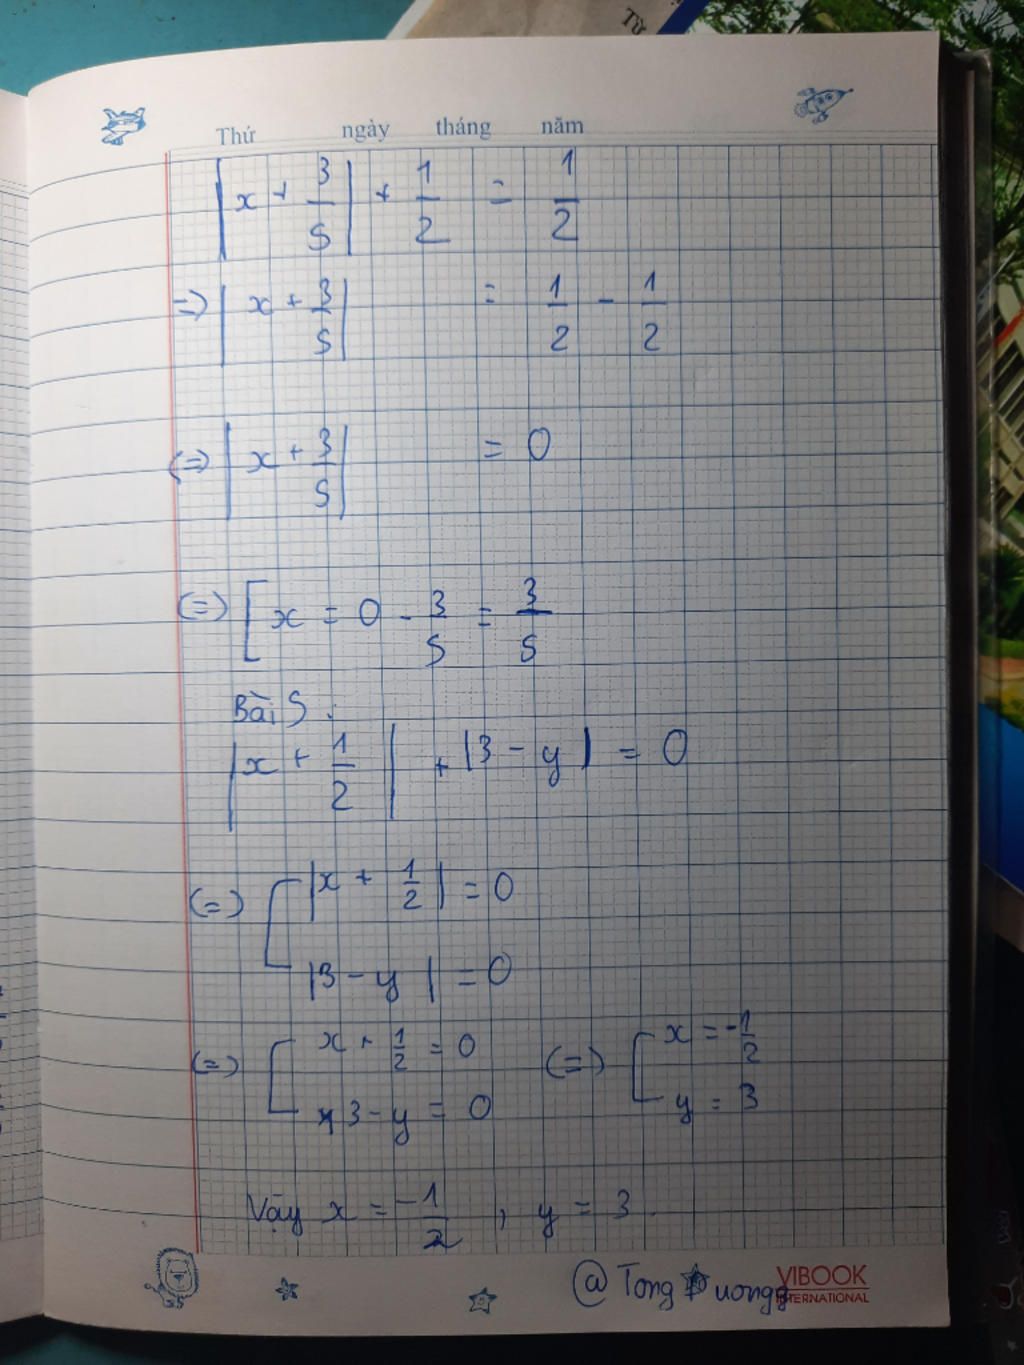 Từ
Thứ ngày tháng năm
|x + 3/5| + 1/2 = 1/2
=) |x + 3/5| = 1/2 - 1/2
(=) |x + 3/5| = 0
(=) [x = 0 - 3/5 = 3/5
Bài 5:
|x + 1/2| + |3 - y| = 0
(=) [|x + 1/2| = 0
|3 - y| = 0
(=) [x + 1/2 = 0 (=) [x = -1/2
3 - y = 0 y = 3
Vậy x = -1/2, y = 3.
@Tong Duongg
VIBOOK
INTERNATIONAL